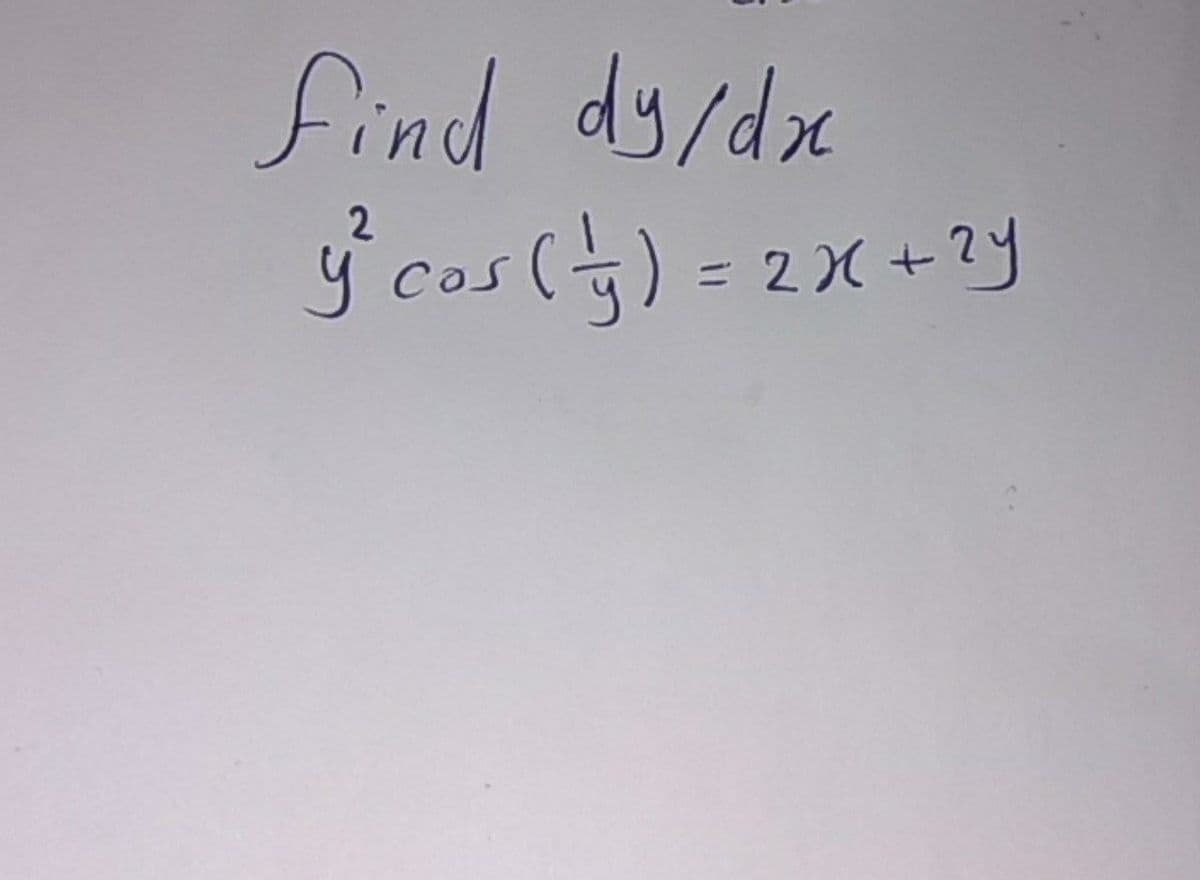 find dy/dx
y² cos(1/y) = 2x + 2y